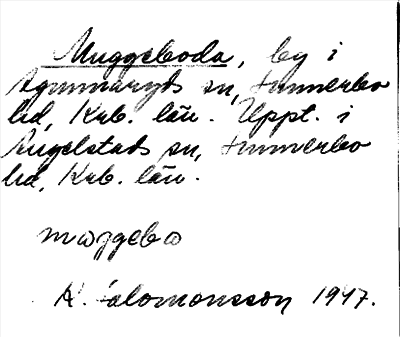 Muggeboda, by i
Agunnaryds sn, Sunnerbo
hd, Krb. län. Uppt. i
Angelstads sn, Sunnerbo
hd, Krb. län.
K. Salomonsson 1947.